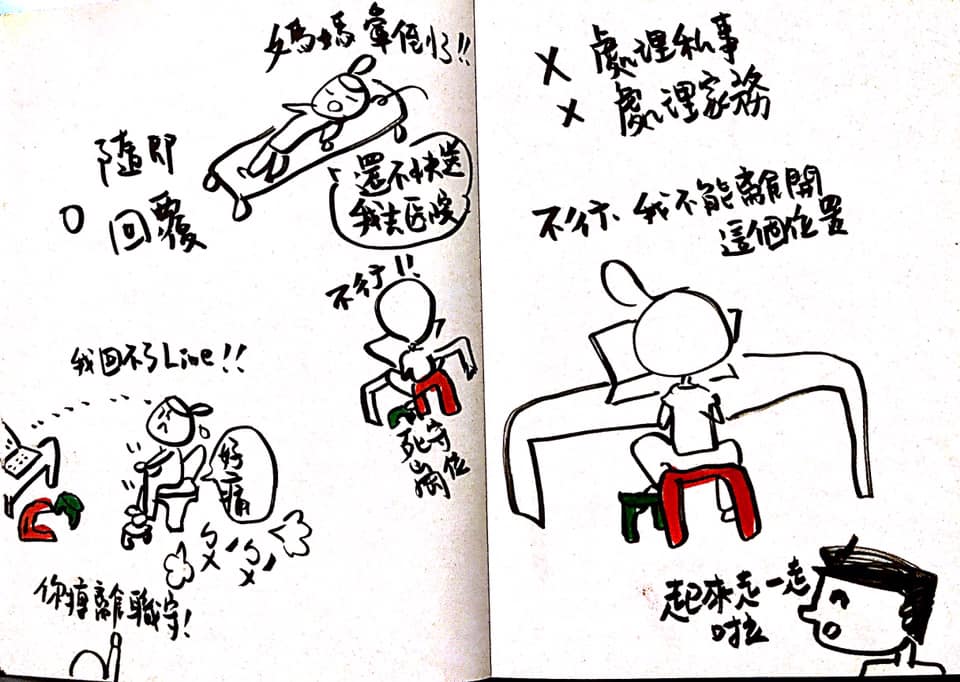 媽媽暈倒了!!
隨即
O 回覆
還不快送
我去医院
不行!!
死守
崗位
我回不了Line!!
好痛
ㄅㄨˊㄅㄨˊ
你擅離職守!
X 處理私事
X 處理家務
不行、我不能離開
這個位置
起來走一走
啦